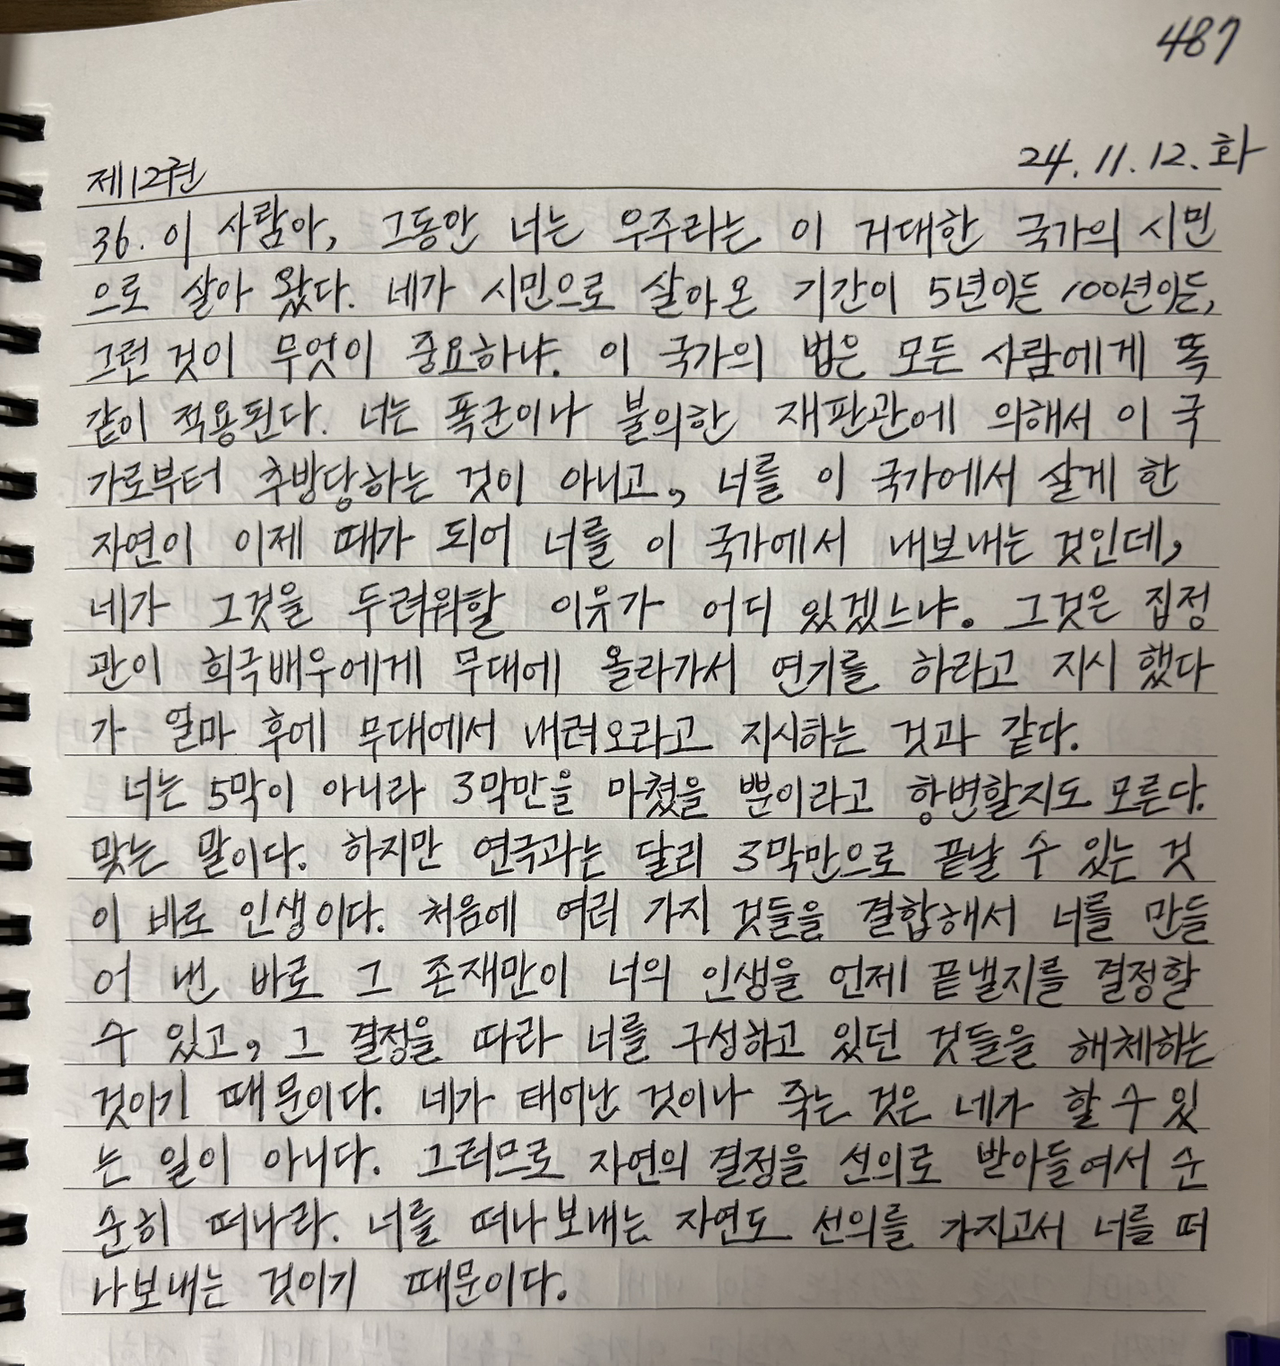 487
24.11.12.화
제12권
36. 이 사람아, 그동안 너는 우주라는 이 거대한 국가의 시민
으로 살아 왔다. 네가 시민으로 살아온 기간이 5년이든 100년이든,
그런 것이 무엇이 중요하냐. 이 국가의 법은 모든 사람에게 똑
같이 적용된다. 너는 폭군이나 불의한 재판관에 의해서 이 국
가로부터 추방당하는 것이 아니고, 너를 이 국가에서 살게 한
자연이 이제 때가 되어 너를 이 국가에서 내보내는 것인데,
네가 그것을 두려워할 이유가 어디 있겠느냐. 그것은 집정
관이 희극배우에게 무대에 올라가서 연기를 하라고 지시 했다
가 얼마 후에 무대에서 내려오라고 지시하는 것과 같다.
너는 5막이 아니라 3막만을 마쳤을 뿐이라고 항변할지도 모른다.
맞는 말이다. 하지만 연극과는 달리 3막만으로 끝날 수 있는 것
이 바로 인생이다. 처음에 여러 가지 것들을 결합해서 너를 만들
어 낸 바로 그 존재만이 너의 인생을 언제 끝낼지를 결정할
수 있고, 그 결정을 따라 너를 구성하고 있던 것들을 해체하는
것이기 때문이다. 네가 태어난 것이나 죽는 것은 네가 할 수 있
는 일이 아니다. 그러므로 자연의 결정을 선의로 받아들여서 순
순히 떠나라. 너를 떠나보내는 자연도 선의를 가지고서 너를 떠
나보내는 것이기 때문이다.